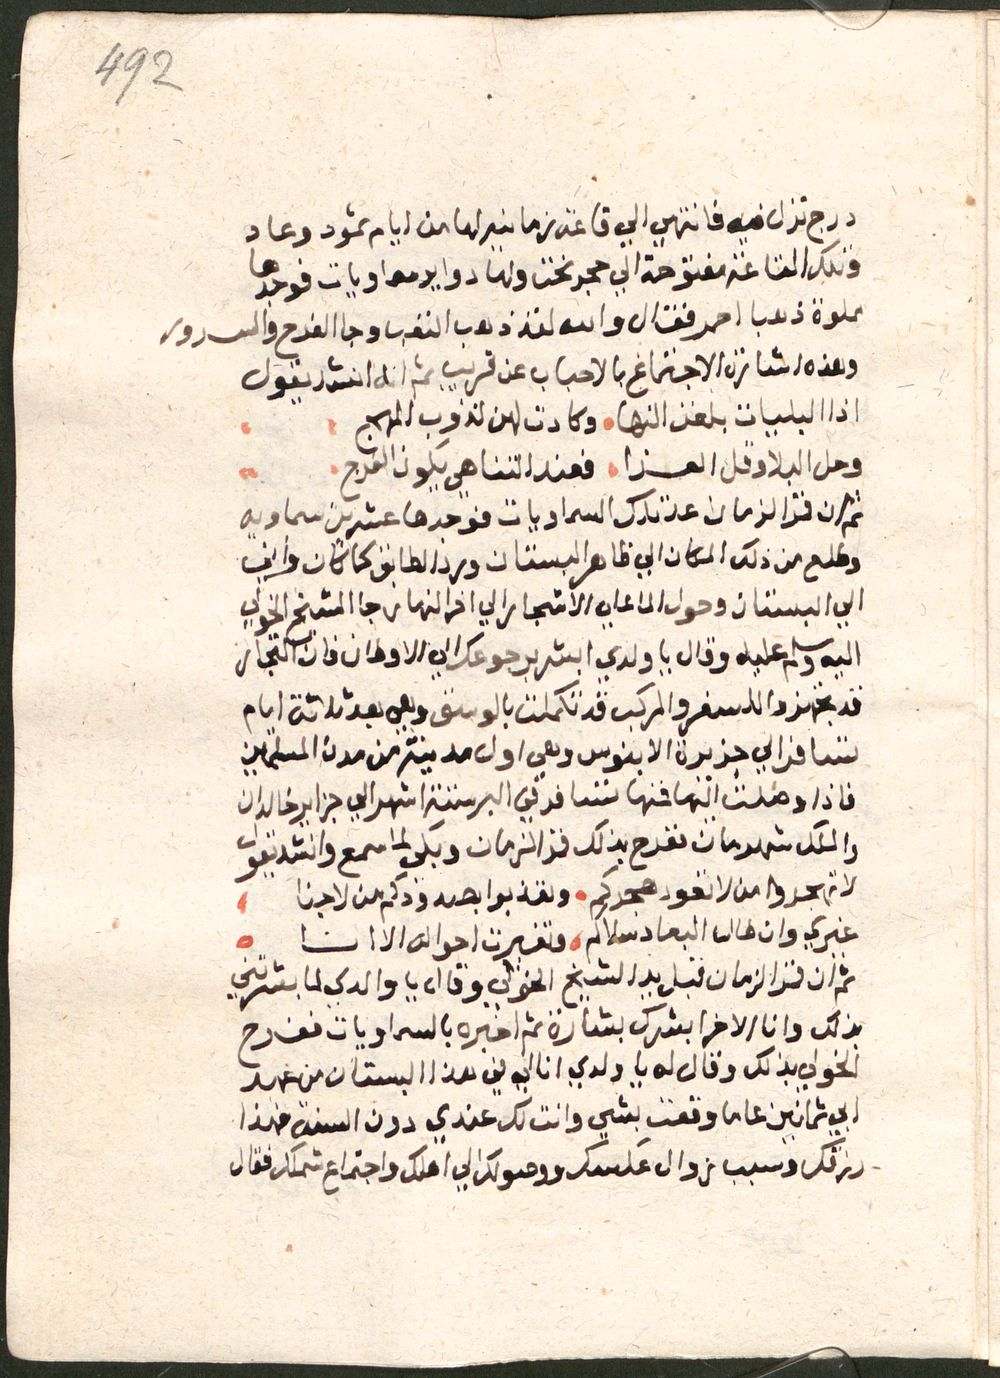 492
درج تنزل فيه فانتهي الي قاعة زمانيرلها من ايام ثمود وعاد
وتلك القاعة مفتوحة الي حجر نحت ولها دواير سماويات فوجدها
مملوة ذهبا احمر فقال والله لقد ذهب التعب وجا الفرح والسرور
وهذه اشارة الاجتماع بالاحباب عن قريب ثم انه انشد يقول
اذا البليات بلغن النها وكادت لهن تذوب المهج
وحل البلا وقل العزا فعند التناهي يكون الفرج
ثم ان قمر الزمان عد تلك السماويات فوجدها عشرين سماويه
وطلع من ذلك المكان الي ظاهر البستان ورد الطابق كما كان واتي
الي البستان وحول الما علي الاشجار الي اخر النهار جا الشيخ الخولي
اليه وسلم عليه وقال يا ولدي ابشر برجوعك الي الاوطان فان التجار
قد تجهزوا للسفر والمركب قد تكملت بالوسق وهي بعد ثلاثة ايام
تسافر الي جزيرة الابنوس وهي اول مدينة من مدن المسلمين
فاذا وصلت اليها فمنها تسافر في البر ستة اشهر الي جزاير خالدان
والملك شهرمان ففرح بذلك قمر الزمان وبكي لما سمع وانشد يقول
لا تهجروا من لا تعود هجركم وتعذبوا بصدودكم من لا جنا
غيري وان طال البعاد سلاكم وتغيرت احواله الا انا
ثم ان قمر الزمان قبل يد الشيخ الخولي وقال يا والدي لما بشرتني
بذلك وانا الاخر ابشرك بشارة ثم اخبره بالسماويات ففرح
الخولي بذلك وقال له يا ولدي انا لي في هذا البستان من عهد
ابي ثمانين عاما وقعت بشي وانت لك عندي دون السنة فهذا
رزقك وسبب زوال عكسك ووصولك الي اهلك واجتماع شملك فقال